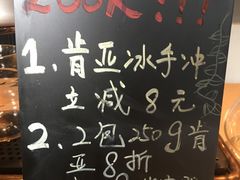 200K!!!
1、肯亚冰手冲
立减8元
2、2包250g肯
亚8折